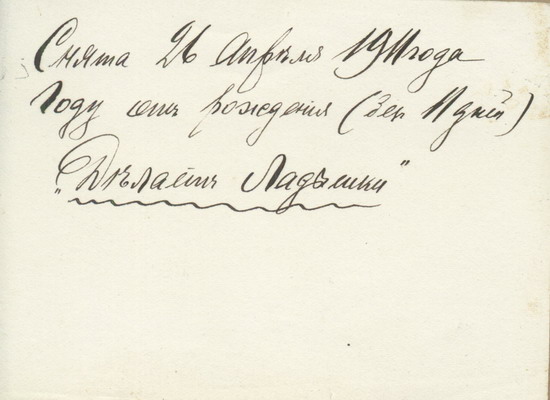 Снята 26 Апрѣля 1911 года
Году отъ рожденія (без 11 дней)
„Дѣлаетъ Ладушки"